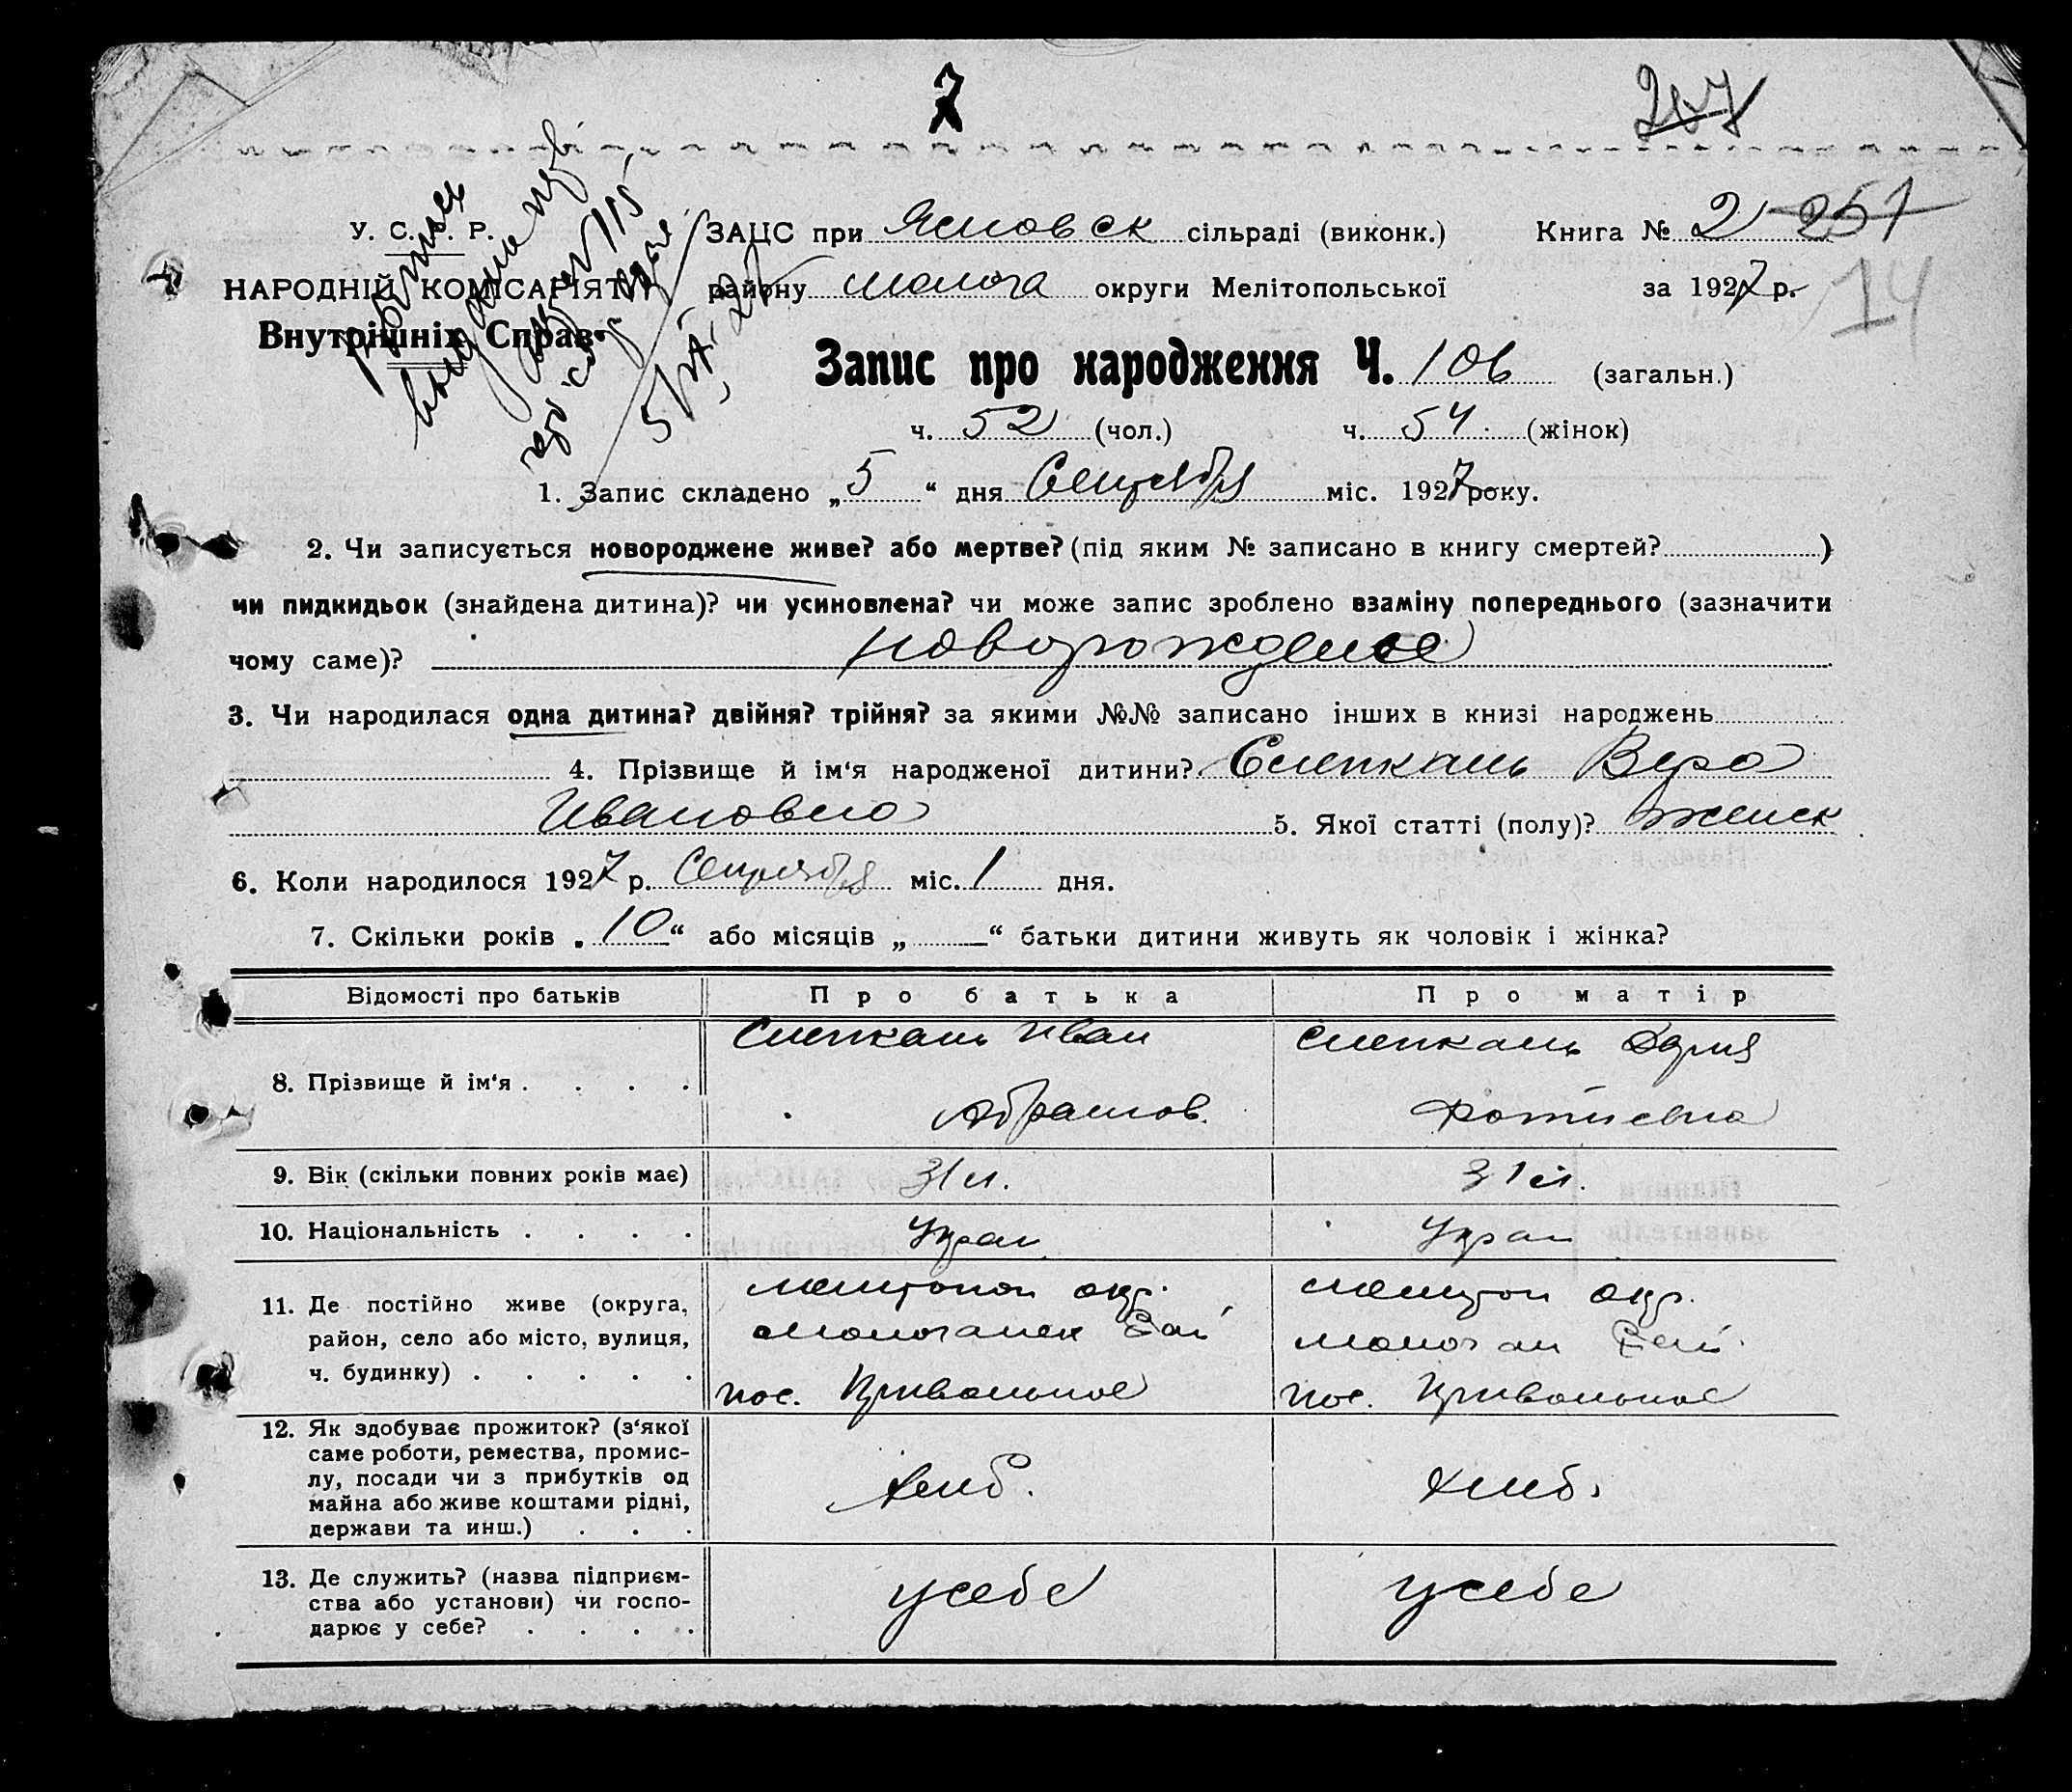 2
207
У. С. Р. Р.
НАРОДНІЙ КОМІСАРІЯТ
Внутрішніх Справ.
ЗАЦС при Ясновск сільраді (виконк.) Книга № 2 251
району Молоча округи Мелітопольської за 1927 р. 14
Запис про народження Ч. 106 (загальн.)
ч. 52 (чол.) ч. 54. (жінок)
1. Запис складено „5“ дня Сентября міс. 1927 року.
2. Чи записується новороджене живе? або мертве? (під яким № записано в книгу смертей? )
чи пидкидьок (знайдена дитина)? чи усиновлена? чи може запис зроблено взаміну попереднього (зазначити
чому саме)? новорожденое
3. Чи народилася одна дитина? двійня? трійня? за якими №№ записано інших в книзі народжень
4. Прізвище й ім‘я народженої дитини? Слепкань Вера
Ивановна 5. Якої статті (полу)? женск
6. Коли народилося 1927 р. Сентября міс. 1 дня.
7. Скільки років „10“ або місяців „ “ батьки дитини живуть як чоловік і жінка?
Відомості про батьків Про батька Про матір
8. Прізвище й ім‘я . . . . Слепкань Иван Слепкань Дария
Абрамов. Фотиевна
9. Вік (скільки повних років має) 31 л. 31 л.
10. Національність . . . . Украи Украи
11. Де постійно живе (округа, Мелитопол окр. Мелитоп окр.
район, село або місто, вулиця, Молочанск Рай Молочан Рай
ч. будинку) . . . . . пос. Привольное пос. Привольное
12. Як здобуває прожиток? (з‘якої
саме роботи, ремества, промис-
лу, посади чи з прибутків од Хлиб. Хлиб.
майна або живе коштами рідні,
держави та инш.) . . .
13. Де служить? (назва підприєм-
ства або установи) чи госпо- у себе у себе
дарює у себе? . . . .